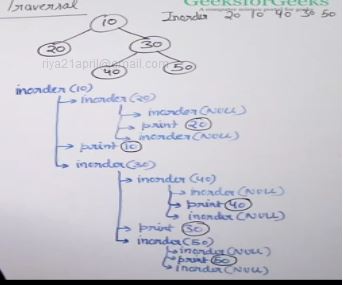 Traversal
GeeksforGeeks
A computer science portal for geeks
Inorder 20 10 40 30 50
10
20 30
riya21april@gmail.com
40 50
inorder(10)
inorder(20)
inorder(NULL)
print 20
inorder(NULL)
print 10
inorder(30)
inorder(40)
inorder(NULL)
print 40
inorder(NULL)
print 30
inorder(50)
inorder(NULL)
print 50
inorder(NULL)